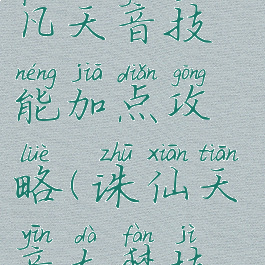 凡天音技
néng jiā diǎn gōng
能加点攻
lüè zhū xiān tiān
略(诛仙天
yīn dà fàn jì